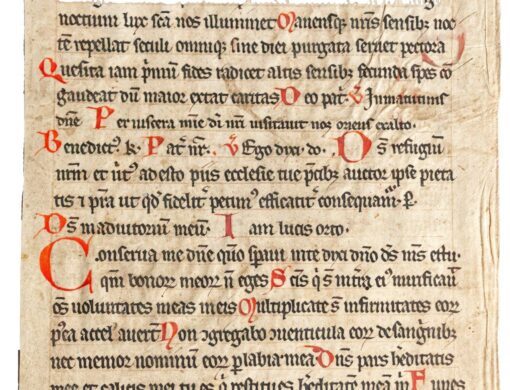 noctium lux scā nos illuminet Manensq; nr̄is sensibꝫ noc
tē repellat seculi omniq; sine diei purgata seruet pectora
Quesita iam p̄mū fides radicet altis sensibꝫ secunda spes cō
gaudeat dū maior extat caritas Deo pat̄. ꝟ In matutinis
dn̄e Per uiscera mīe dī nr̄i uisitauit nos oriens exalto.
Benedict᷒. k. Pat̄ nr̄. ꝟ Ego dixi. do. Ds̄ refugiū
nr̄m et uirt᷒ adesto piis ecclesie tue p̄cibꝫ auctor ipse pieta
tis ⁊ p̄ra ut qd̄ fidelit̄ petim᷒ efficacit̄ consequam̄. P.
Ds̄ in adiutoriū meū. Iam lucis orto.
Conserua me dn̄e qm̄ speraui in te dixi dn̄o ds̄ ms̄ es tu.
qm̄ bonorꝝ meorꝝ ñ eges Scīs q̄ s̄ in trā ei᷒ mirificauı̄
oēs uoluntates meas in eis Multiplicate s̄ infirmitates eorꝝ
p᷒ea accel auert̄ Non ↄgregabo ↄuenticula eorꝝ de sanguı̄bꝫ
nec memor nominū eorꝝ ꝑ labia mea Dn̄s pars h̄editatis
mee et calicis mei tu es q̄ restitues h̄editatē meā m̄ Funes